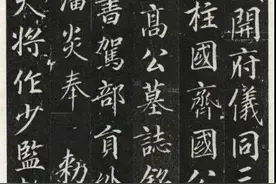 開府儀同三
柱國齊國公
髙公墓誌銘
書駕部貟外
潘炎奉 敕
夫將作少監